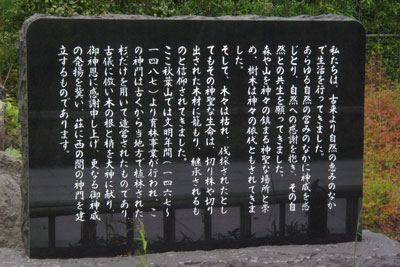 私たちは、古来より自然の恵みのなか
で生活を行ってきました。
あらゆる自然の営みのなかに神威を感
じとり、自然への感謝を抱き、その自
然との共生を願ってきました。
森や山を神々の鎮まる神聖な場所と崇
め、樹木は神々の依代ともされてきま
した。
そして、木々は枯れ、伐採されたとし
てもその神聖な生命は、切り株や切り
出された木材に籠もり、継承されるも
のと信仰されてきました。
ここ秋葉山では文明年間（一四六七〜
一四八七）より育林事業が行われ、こ
の神門は古くから当地方で植林された
杉だけを用いて造営されたものであり、
古儀に倣い木の根と梢を大神に献り、
御神恩に感謝申し上げ、更なる御神威
の発揚を冀い、茲に西の閤の神門を建
立するものであります。